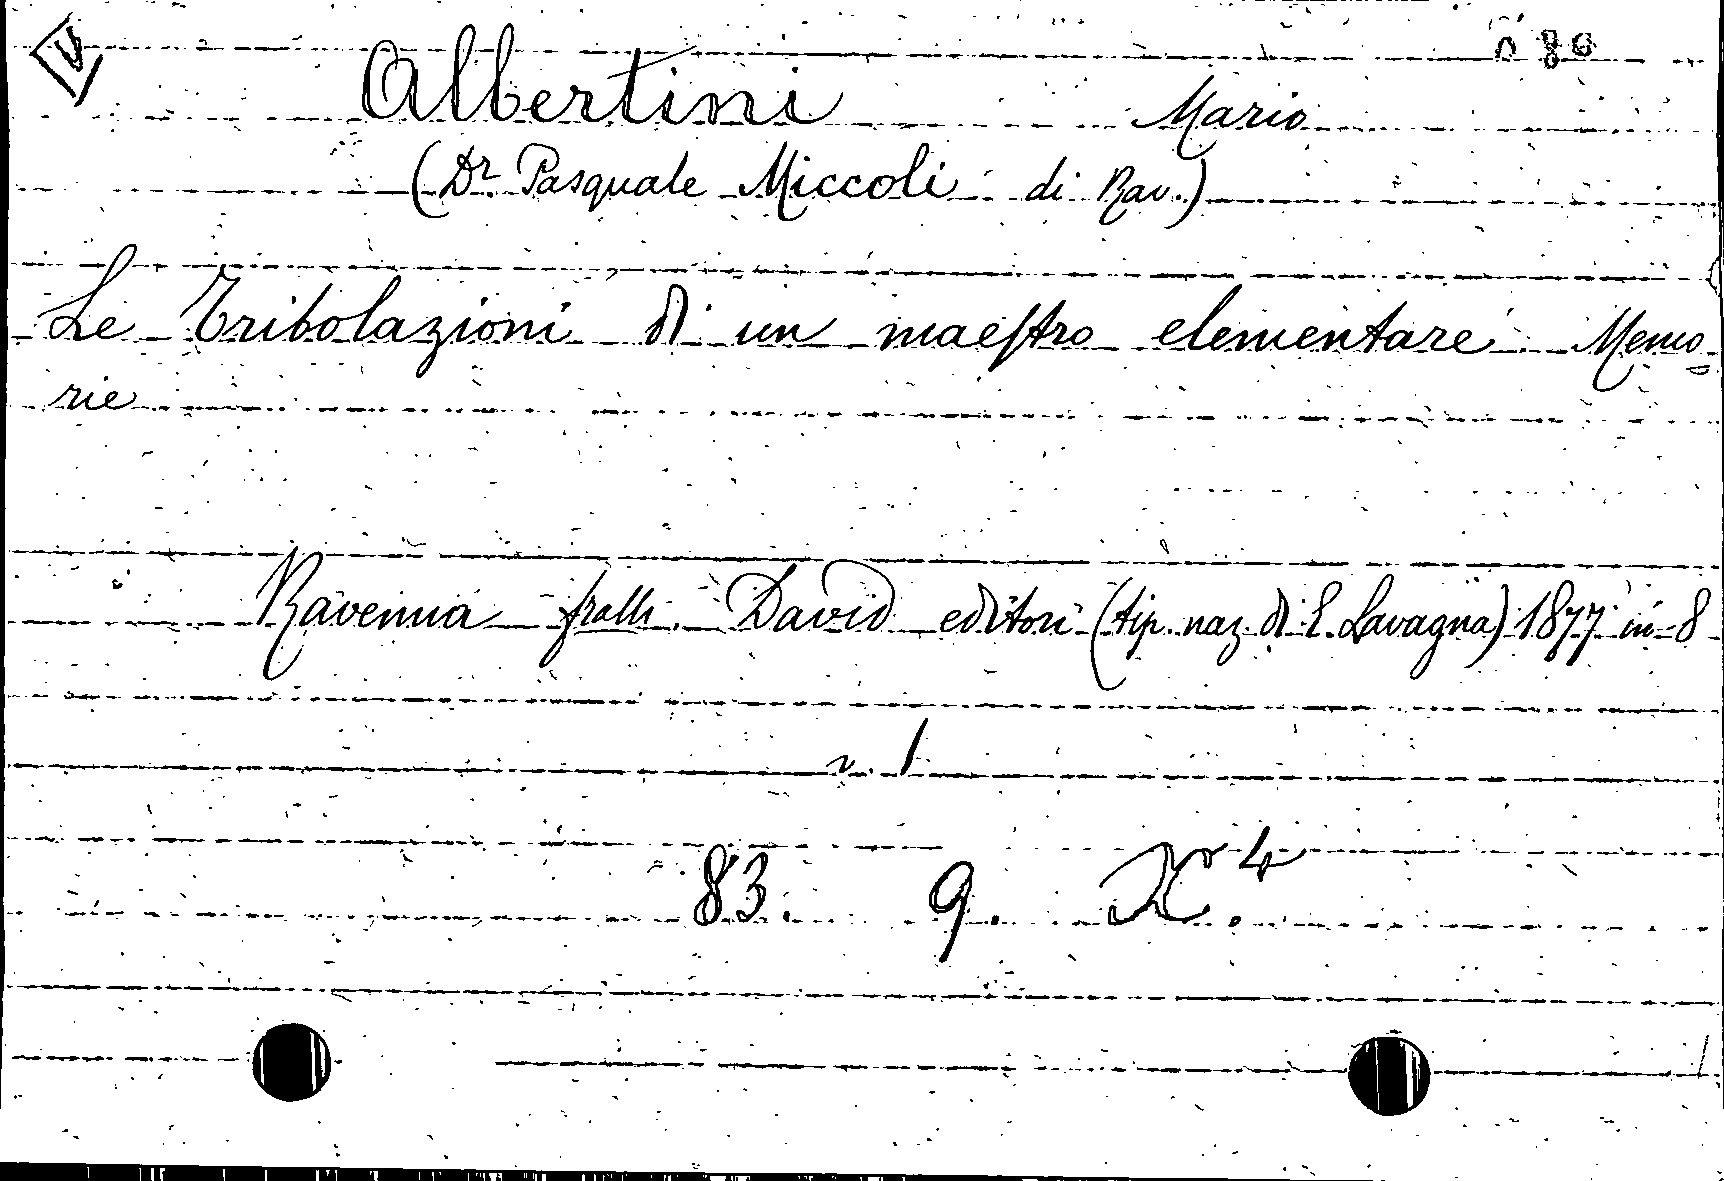 V n 80
Albertini Mario
(Dr Pasquale Miccoli di Rav.)
Le Tribolazioni di un maestro elementare Memo=
rie
Ravenna frattti David editori (tip. naz. di E. Lavagna) 1877 in-8
v. 1
83. 9. X4.